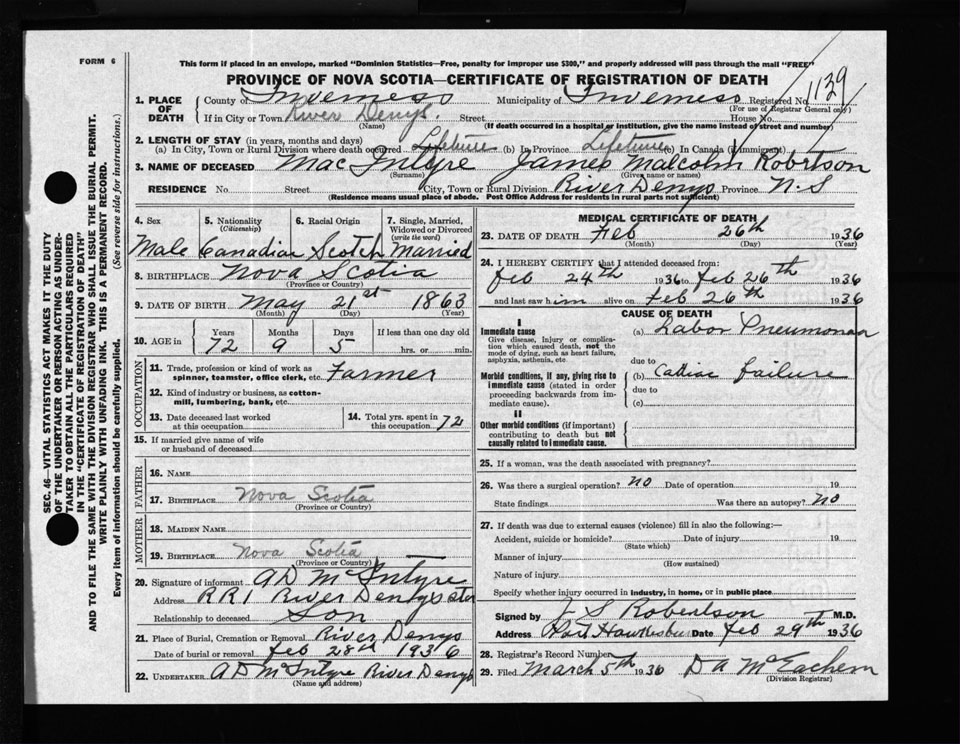 FORM 6
This form if placed in an envelope, marked "Dominion Statistics—Free, penalty for improper use $300," and properly addressed will pass through the mail "FREE"
PROVINCE OF NOVA SCOTIA—CERTIFICATE OF REGISTRATION OF DEATH
1. PLACE OF DEATH County of Inverness Municipality of Inverness Registered No. 1129
(For use of Registrar General only)
If in City or Town River Denys. Street House No.
(Name) (If death occurred in a hospital or institution, give name instead of street and number)
2. LENGTH OF STAY (in years, months and days)
(a) In City, Town or Rural Division where death occurred Lifetime (b) In Province Lifetime (c) In Canada (if immigrant)
3. NAME OF DECEASED MacIntyre James Malcolm Robertson
(Surname) (Given name or names)
RESIDENCE No. Street City, Town or Rural Division River Denys Province N.S
(Residence means usual place of abode. Post Office Address for residents in rural parts not sufficient)
4. Sex 5. Nationality (Citizenship) 6. Racial Origin 7. Single, Married, Widowed or Divorced (write the word)
Male Canadian Scotch Married
8. BIRTHPLACE Nova Scotia
(Province or Country)
9. DATE OF BIRTH May 21st 1863
(Month) (Day) (Year)
10. AGE in Years Months Days If less than one day old
72 9 5 hrs. or min.
OCCUPATION
11. Trade, profession or kind of work as spinner, teamster, office clerk, etc. Farmer
12. Kind of industry or business, as cotton-mill, lumbering, bank, etc.
13. Date deceased last worked at this occupation 14. Total yrs. spent in this occupation 72
15. If married give name of wife or husband of deceased
FATHER
16. NAME
17. BIRTHPLACE Nova Scotia
(Province or Country)
MOTHER
18. MAIDEN NAME
19. BIRTHPLACE Nova Scotia
(Province or Country)
20. Signature of informant A D McIntyre
Address RR1 River Denys Stn
Relationship to deceased Son
21. Place of Burial, Cremation or Removal River Denys
Date of burial or removal Feb 28th 1936
22. UNDERTAKER A D McIntyre River Denys
(Name and address)
MEDICAL CERTIFICATE OF DEATH
23. DATE OF DEATH Feb 26th 1936
(Month) (Day) (Year)
24. I HEREBY CERTIFY that I attended deceased from:
Feb 24th 1936 to Feb 26th 1936
and last saw him alive on Feb 26th 1936
CAUSE OF DEATH
I
Immediate cause (a) Labor Pneumonaa
Give disease, injury or complication which caused death, not the mode of dying, such as heart failure, asphyxia, asthenia, etc.
due to
Morbid conditions, if any, giving rise to immediate cause (stated in order proceeding backwards from immediate cause). (b) Cadiac failure
due to
(c)
II
Other morbid conditions (if important) contributing to death but not causally related to immediate cause.
25. If a woman, was the death associated with pregnancy?
26. Was there a surgical operation? No Date of operation 19
State findings Was there an autopsy? No
27. If death was due to external causes (violence) fill in also the following:—
Accident, suicide or homicide? Date of injury 19
(State which)
Manner of injury
(How sustained)
Nature of injury
Specify whether injury occurred in industry, in home, or in public place
Signed by J S Robertson M.D.
Address Port Hawkesbury Date Feb 29th 1936
28. Registrar's Record Number
29. Filed March 5th 1936 D A McEachern
(Division Registrar)
SEC. 46—VITAL STATISTICS ACT MAKES IT THE DUTY
OF THE UNDERTAKER OR PERSON ACTING AS UNDERTAKER
TO OBTAIN ALL THE PARTICULARS REQUIRED
IN THE "CERTIFICATE OF REGISTRATION OF DEATH"
AND TO FILE THE SAME WITH THE DIVISION REGISTRAR WHO SHALL ISSUE THE BURIAL PERMIT.
WRITE PLAINLY WITH UNFADING INK. THIS IS A PERMANENT RECORD.
Every item of information should be carefully supplied. (See reverse side for instructions.)